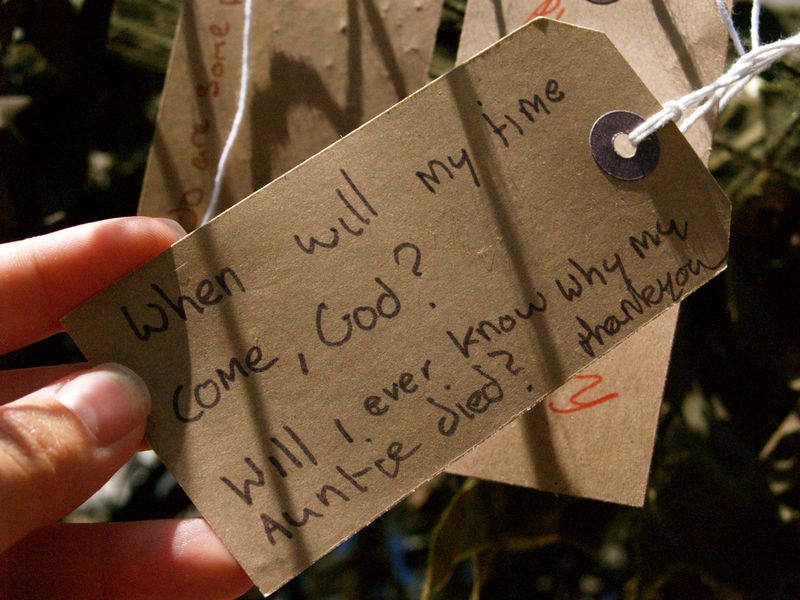 When will my time
come, God?
Will I ever know why my
Auntie died? thankyou
are some